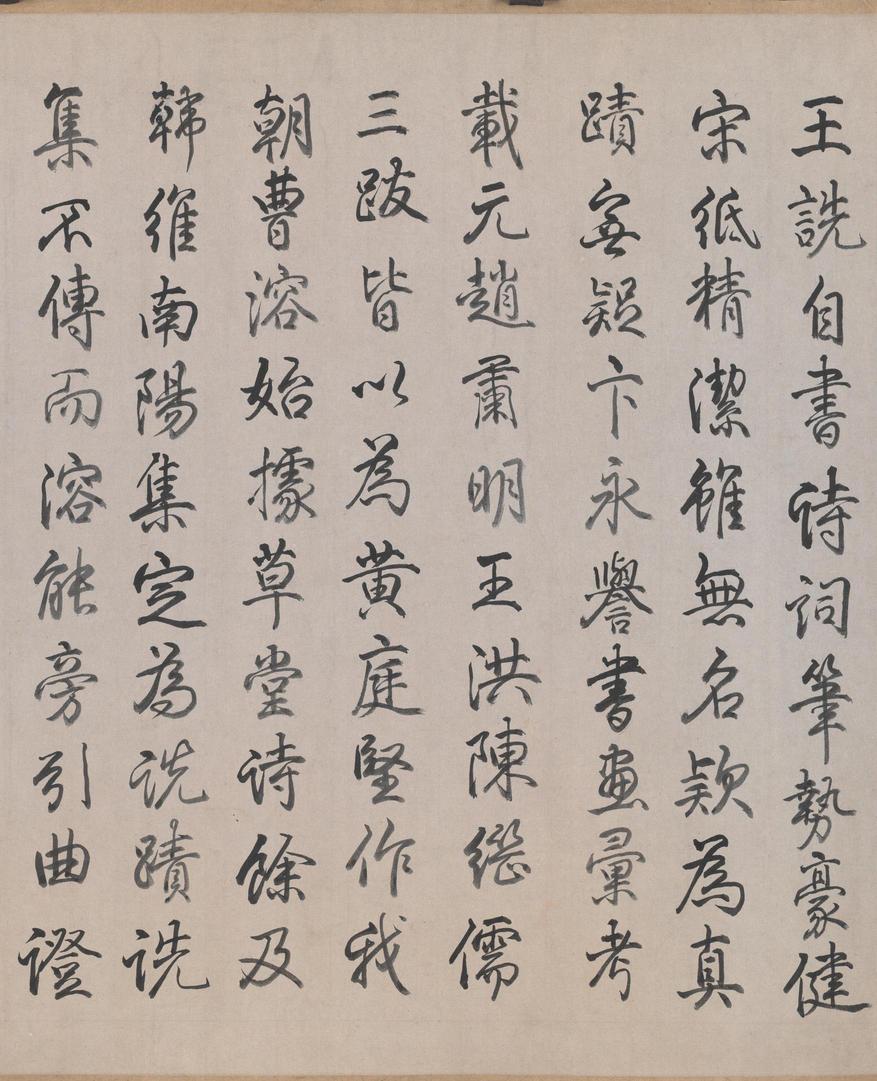 王詵自書詩詞筆勢豪健
宋紙精潔雖無名款為真
蹟無疑卞永譽書畫彙考
載元趙肅明王洪陳繼儒
三跋皆以為黃庭堅作我
朝曹溶始據草堂詩餘及
韓維南陽集定為詵蹟詵
集不傳而溶能旁引曲證